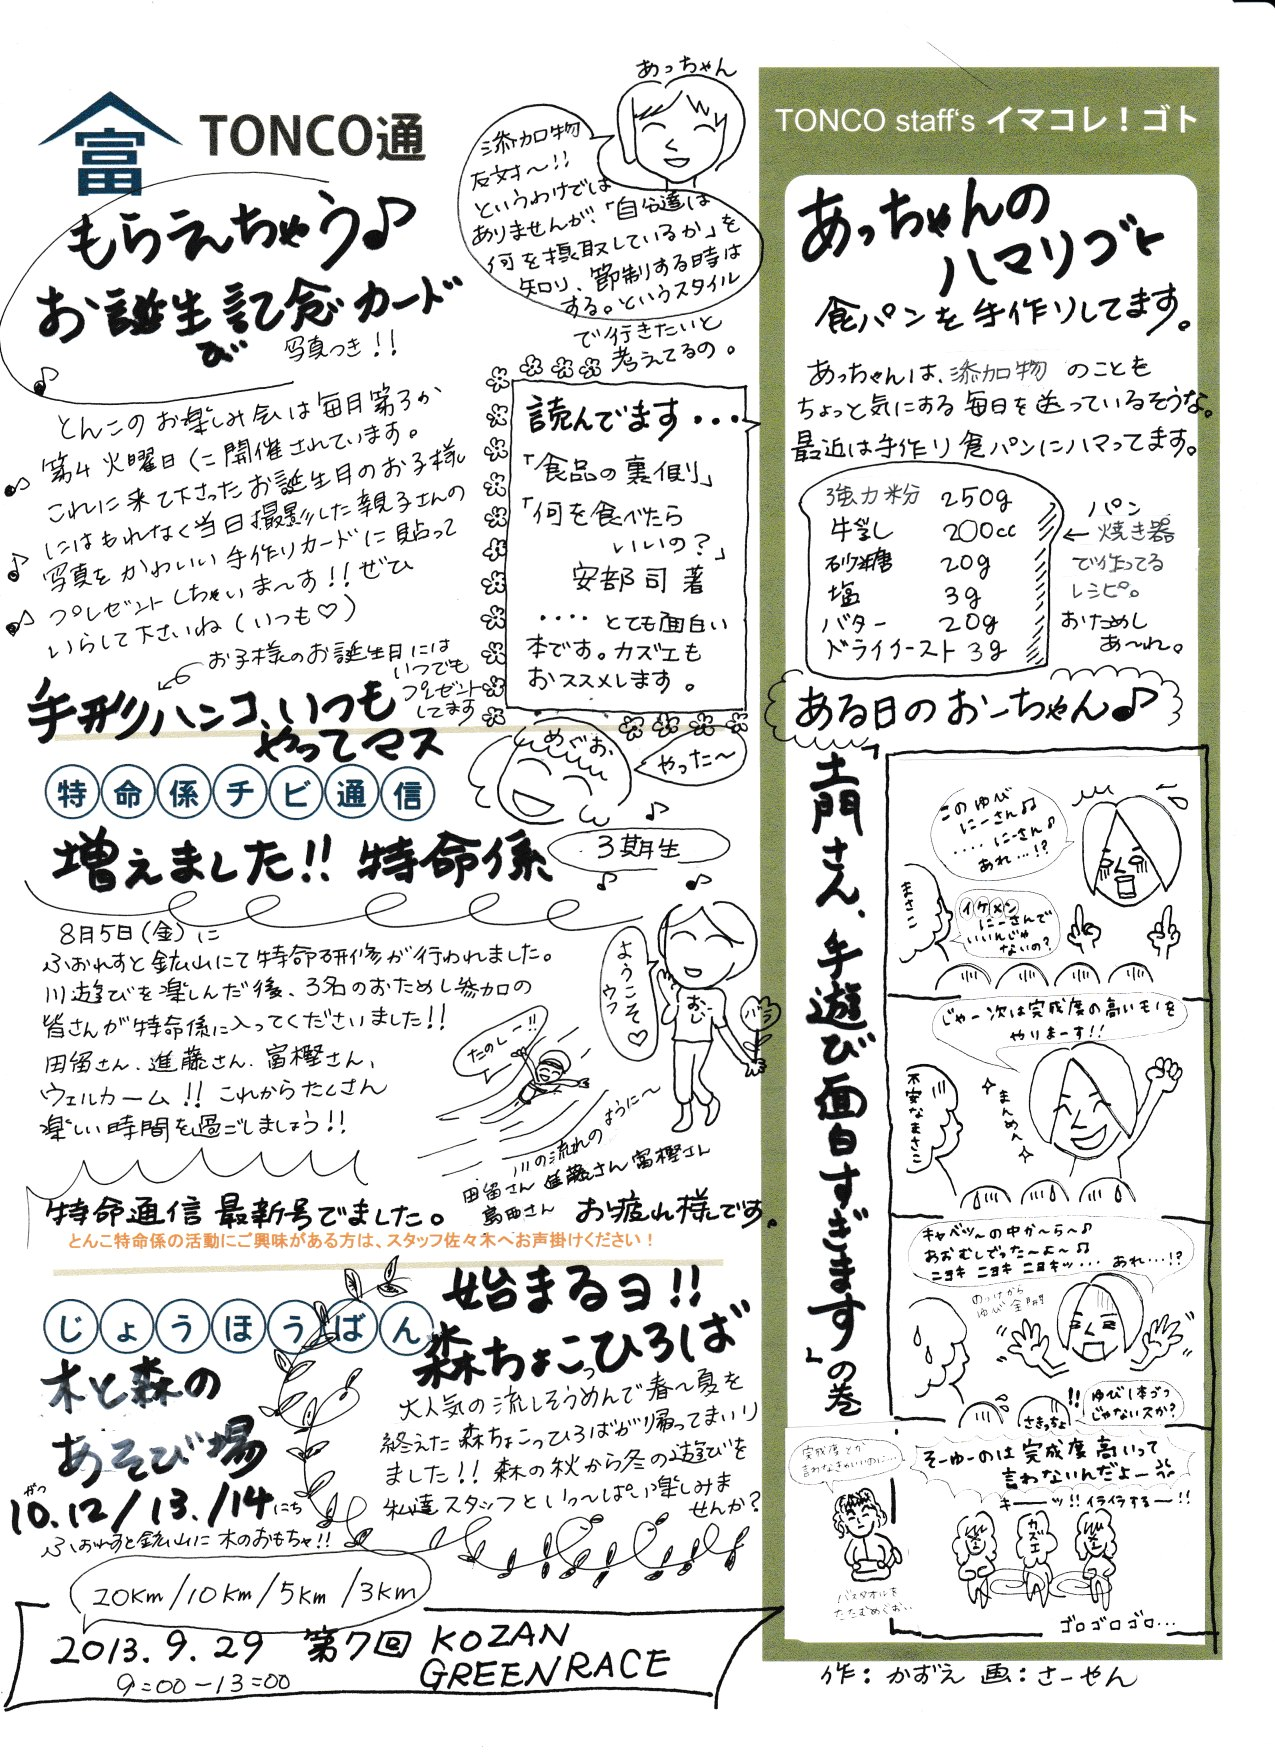 富
TONCO通
もらえちゃう♪
お誕生記念カード
写真つき!!
とんこのお楽しみ会は毎月第3か
第4火曜日に開催されています。
これに来て下さったお誕生月のお子様
にはもれなく当日撮影した親子さんの
写真をかわいい手作りカードに貼って
プレゼントしちゃいま〜す!!ぜひ
いらして下さいね(いつも♡)
お子様のお誕生月には
いつでも
プレゼント
してます
手形ハンコ、いつも
やってマス
あっちゃん
添加物
反対〜!!
というわけでは
ありませんが、「自分達は
何を摂取しているか」を
知り、節制する時は
する。というスタイル
で行きたいと
考えてるの。
読んでます・・・
「食品の裏側」
「何を食べたら
いいの?」
安部司 著
・・・・とても面白い
本です。カズエも
おススメします。
特命係チビ通信
増えました!! 特命係
めぐお
やった〜
3期生
8月5日(金)に
ふおれすと鉱山にて特命研修が行われました。
川遊びを楽しんだ後、3名のおためし参加の
皆さんが特命係に入ってくださいました!!
田留さん、進藤さん、富樫さん、
ウェルカーム!! これからたくさん
楽しい時間を過ごしましょう!!
ようこそ♡
ウフ
たのしー!!
川の流れのように〜
田留さん 進藤さん 富樫さん
島西さん お疲れ様です。
特命通信 最新号でました。
とんこ特命係の活動にご興味がある方は、スタッフ佐々木へお声掛けください!
じょうほうばん
木と森の
あそび場
10.12/13./14にち
がつ
ふおれすと鉱山に木のおもちゃ!!
始まるヨ!!
森ちょこっひろば
大人気の流しそうめんで春〜夏を
終えた森ちょこっひろばが帰ってまいり
ました!! 森の秋から冬の遊びを
私達スタッフとい〜っぱい楽しみま
せんか?
20km/10km/5km/3km
2013.9.29 第7回 KOZAN
GREENRACE
9:00-13:00
TONCO staff's イマコレ!ゴト
あっちゃんの
ハマリゴト
食パンを手作りしてます。
あっちゃんは、添加物のことを
ちょっと気にする毎日を送っているそうな。
最近は手作り食パンにハマってます。
強力粉 250g
牛乳 200cc
砂糖 20g
塩 3g
バター 20g
ドライイースト 3g
パン
←焼き器
で作ってる
レシピ。
おためし
あ〜れ。
ある日のおーちゃん♪
「土門さん、手遊び面白すぎます」の巻
このゆび
にーさん♫
・・・・にーさん♪
あれ…!?
まさこ
イケメン
にーさんで
いいんじゃ
ないの?
じゃー次は完成度の高いモノを
やりまーす!!
まんめん
不安なまさこ
キャベツ〜の中か〜ら〜♪
あおむしでった〜よ〜♫
ニョキ ニョキ ニョキッ・・・ あれ…!?
のっけから
ゆび全開
さきっちょ
!!
ゆび1本づつ
じゃないスか?
完成度とか
言わなきゃいいのに…
そーゆーのは完成度高いって
言わないんだよー
キーーッ!!イライラするー!!
カズエ
バスタオルを
たたむめぐおい
ゴロゴロゴロ…
作:かずえ 画:さーやん